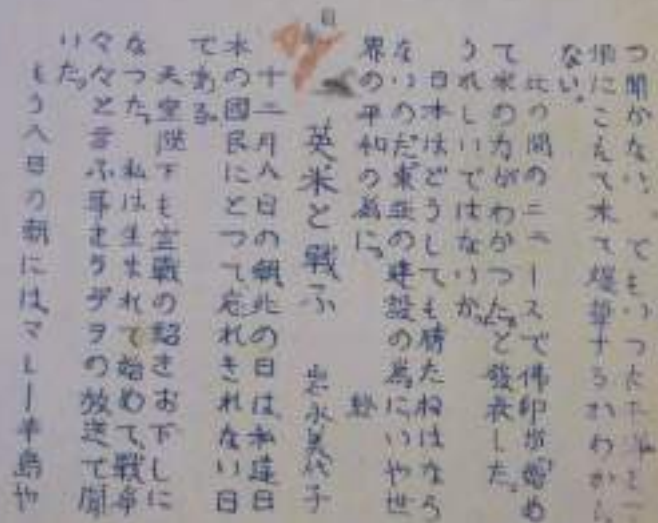 つ聞かない。でもいつ
にこえて来て爆撃するかわから
ない。
此の間のニュースで佛印が始め
て米の力がわかつた。と發表した。
うれしいではないか。
日本はどうしても勝たねばなら
ないのだ。東亜の建設の為にいや世
界の平和の為に。
終
英米と戰ふ 岩永美代子
十二月八日の朝此の日は私達日
本の國民にとつて忘れきれない日
である。
天皇陛下も宣戰の詔さお下しに
なつた。私は生まれて始めて、戰爭
々々と言ふ事をラヂヲの放送で聞
いた。
もう八日の朝にはマレー半島や